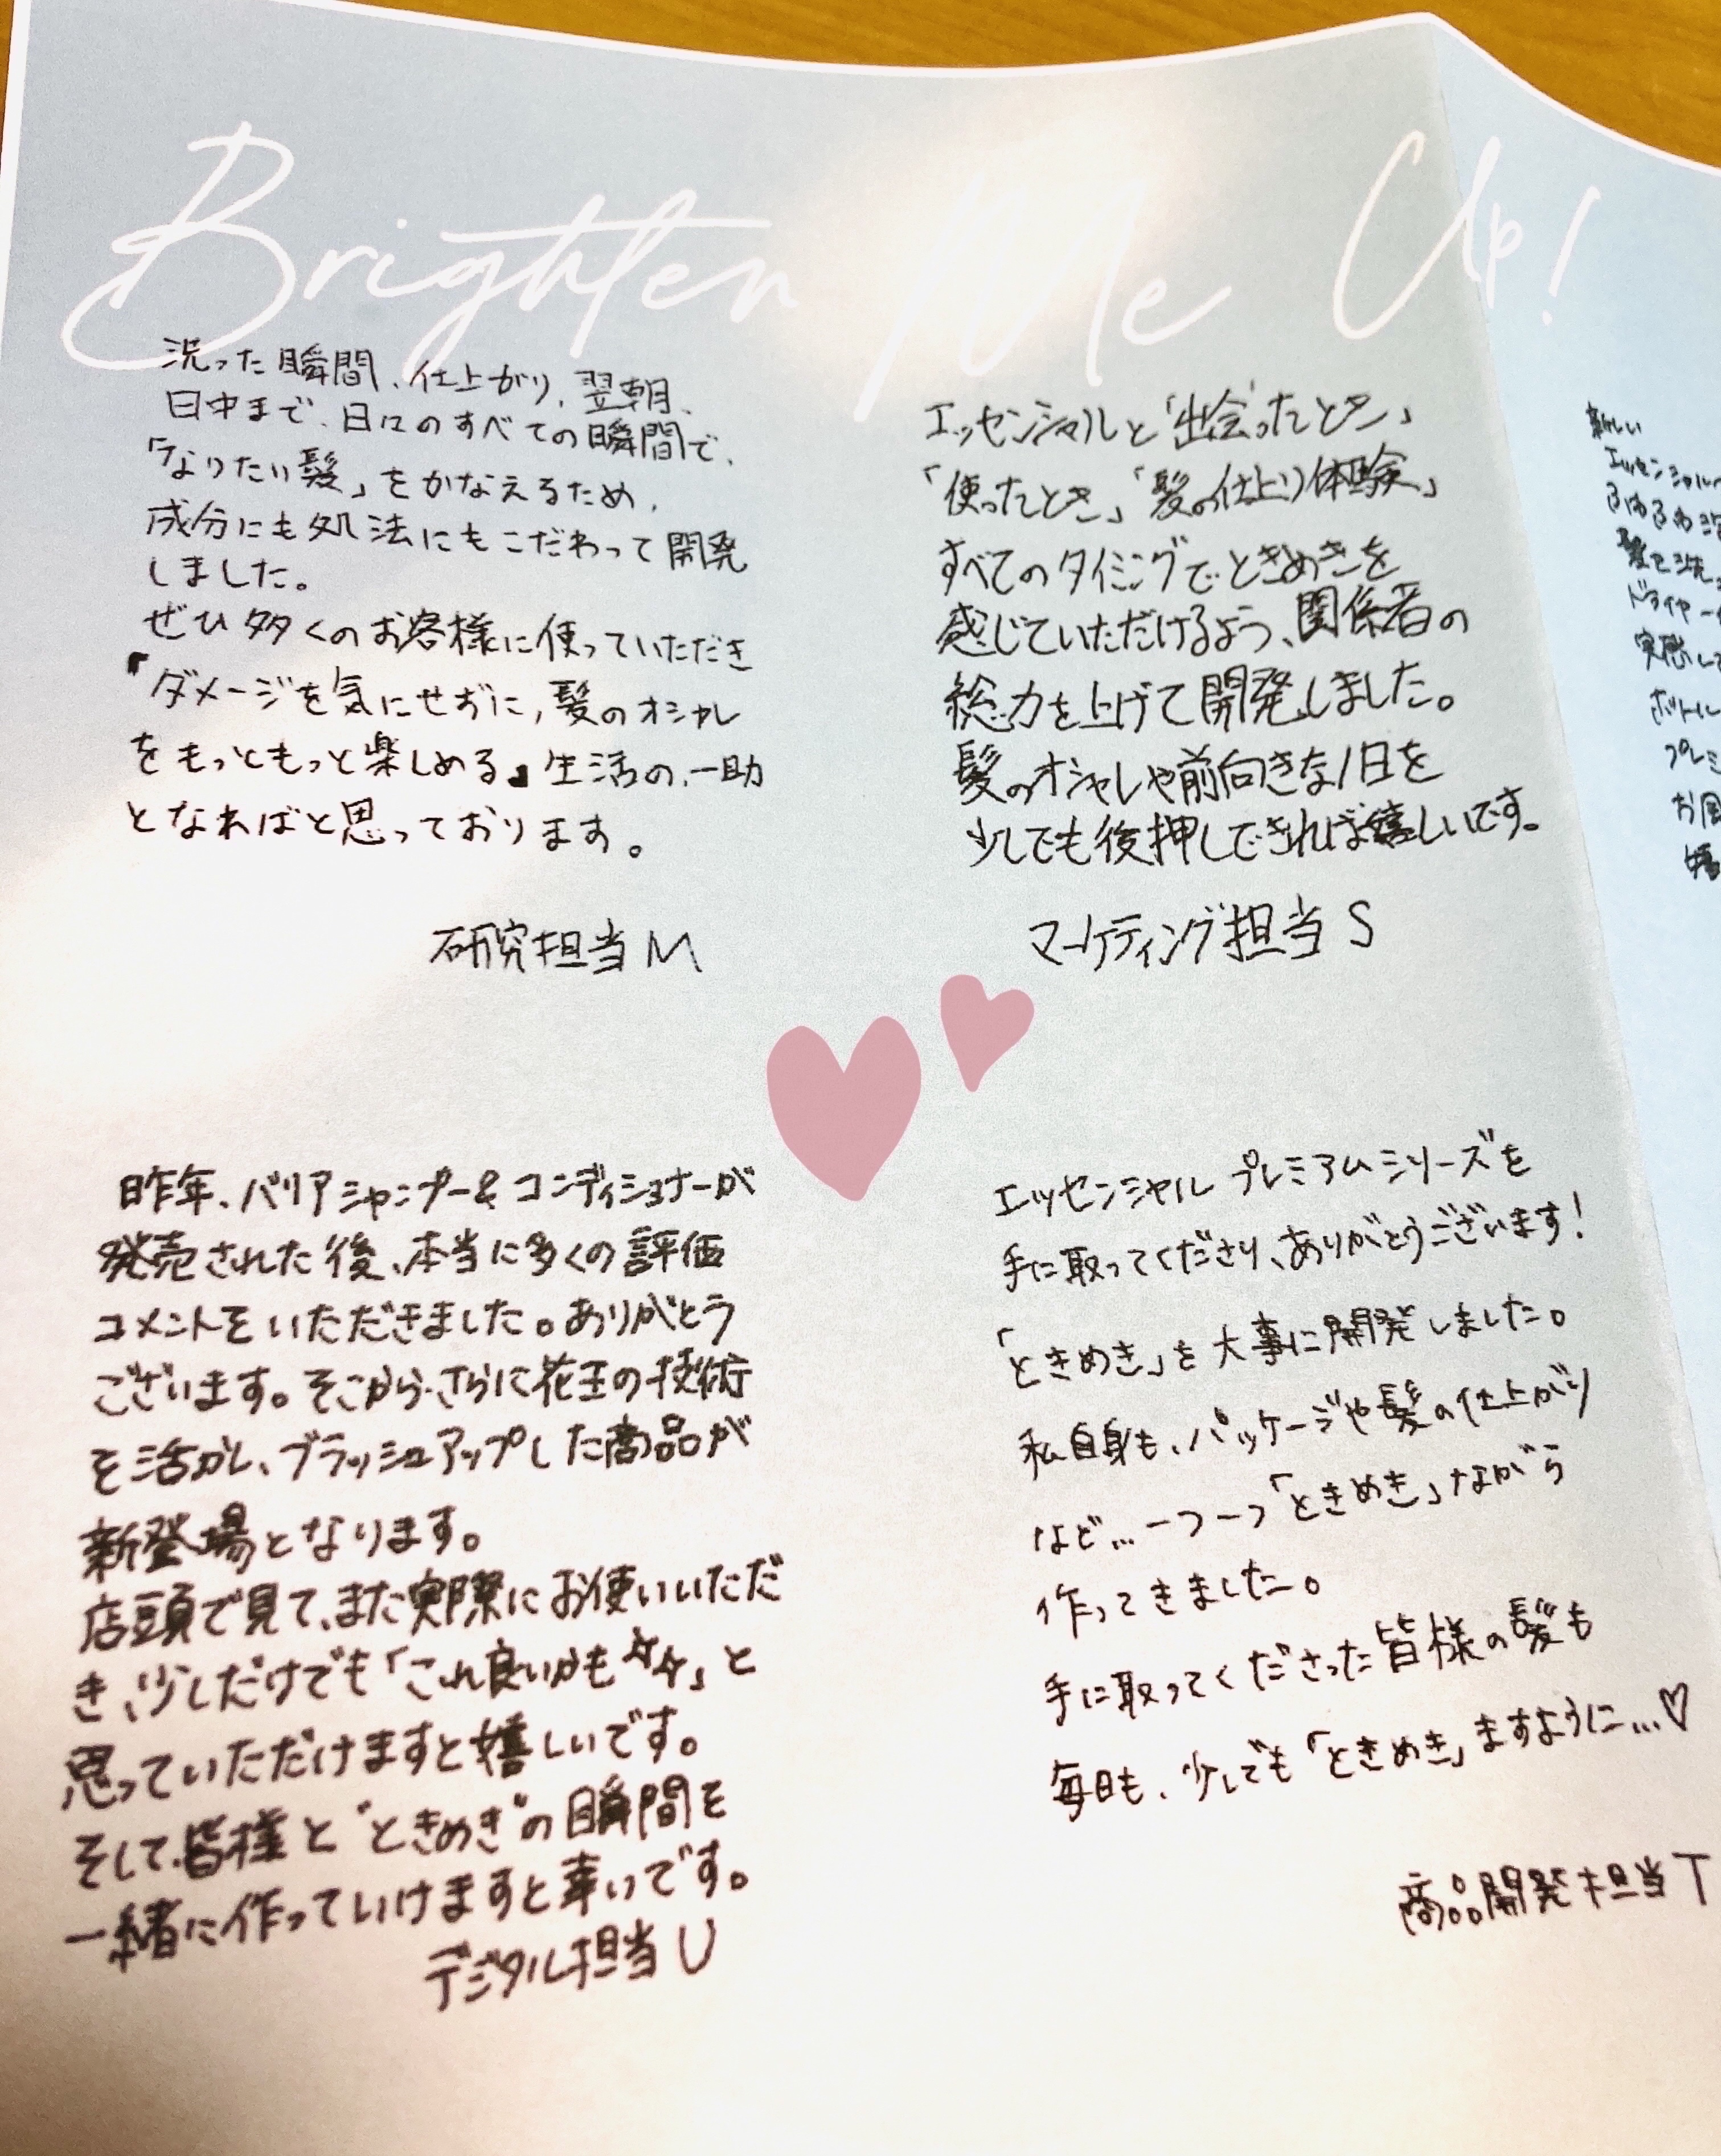 Brighten Me Up!
洗った瞬間、仕上がり、翌朝、
日中まで、日々のすべての瞬間で、
「なりたい髪」をかなえるため、
成分にも処法にもこだわって開発
しました。
ぜひ多くのお客様に使っていただき
「ダメージを気にせずに、髪のオシャレ
をもっともっと楽しめる」生活の、一助
となればと思っております。
研究担当 M
エッセンシャルと「出会ったとき」
「使ったとき」「髪の仕上り体験」
すべてのタイミングでときめきを
感じていただけるよう、関係者の
総力を上げて開発しました。
髪のオシャレや前向きな1日を
少しでも後押しできれば嬉しいです。
マーケティング担当 S
昨年、バリアシャンプー&コンディショナーが
発売された後、本当に多くの評価
コメントをいただきました。ありがとう
ございます。そこからさらに花王の技術
を活かし、ブラッシュアップした商品が
新登場となります。
店頭で見て、また実際にお使いいただ
き、少しだけでも「これ良いかも☆☆」と
思っていただけますと嬉しいです。
そして、皆様と"ときめき"の瞬間を
一緒に作っていけますと幸いです。
デジタル担当 U
エッセンシャル プレミアムシリーズを
手に取ってくださり、ありがとうございます!
「ときめき」を大事に開発しました。
私自身も、パッケージや髪の仕上がり
など…一つ一つ「ときめき」ながら
作ってきました。
手に取ってくださった皆様の髪も
毎日も、少しでも「ときめき」ますように…♡
商品開発担当 T
新しい
エッセンシャル
髪を洗
ドライヤー
実感して
ボトル
プレミ
お風